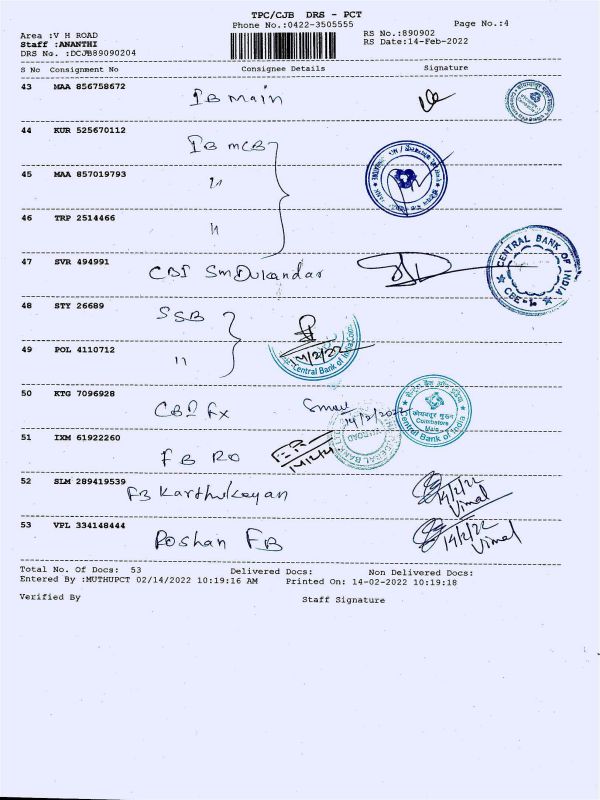 TPC/CJB DRS - PCT
Phone No.:0422-3505555
Page No.:4
Area :V H ROAD
RS No.:890902
Staff :ANANTHI
RS Date:14-Feb-2022
DRS No. :DCJB89090204
S No Consignment No Consignee Details Signature
43 MAA 856758672 IB Main
44 KUR 525670112 IB MCB
45 MAA 857019793 "
46 TRP 2514466 "
47 SVR 494991 CBI SmDukandar
CENTRAL BANK OF INDIA
CBE-1.
48 STY 26689 SSB
14/2/22
Central Bank of India
49 POL 4110712 "
50 KTG 7096928 CBI Fx
14/2/2022
सेन्ट्रल बैंक ऑफ इंडिया
कोयम्बतूर मुख्य
Coimbatore
Main
Central Bank of India
51 IXM 61922260 FB RO
FEDERAL BANK
52 SLM 289419539 FB Karthikeyan
14/2/22
Vimal
53 VPL 334148444 Roshan FB
14/2/22
Vimal
Total No. Of Docs: 53 Delivered Docs: Non Delivered Docs:
Entered By :MUTHUPCT 02/14/2022 10:19:16 AM Printed On: 14-02-2022 10:19:18
Verified By Staff Signature